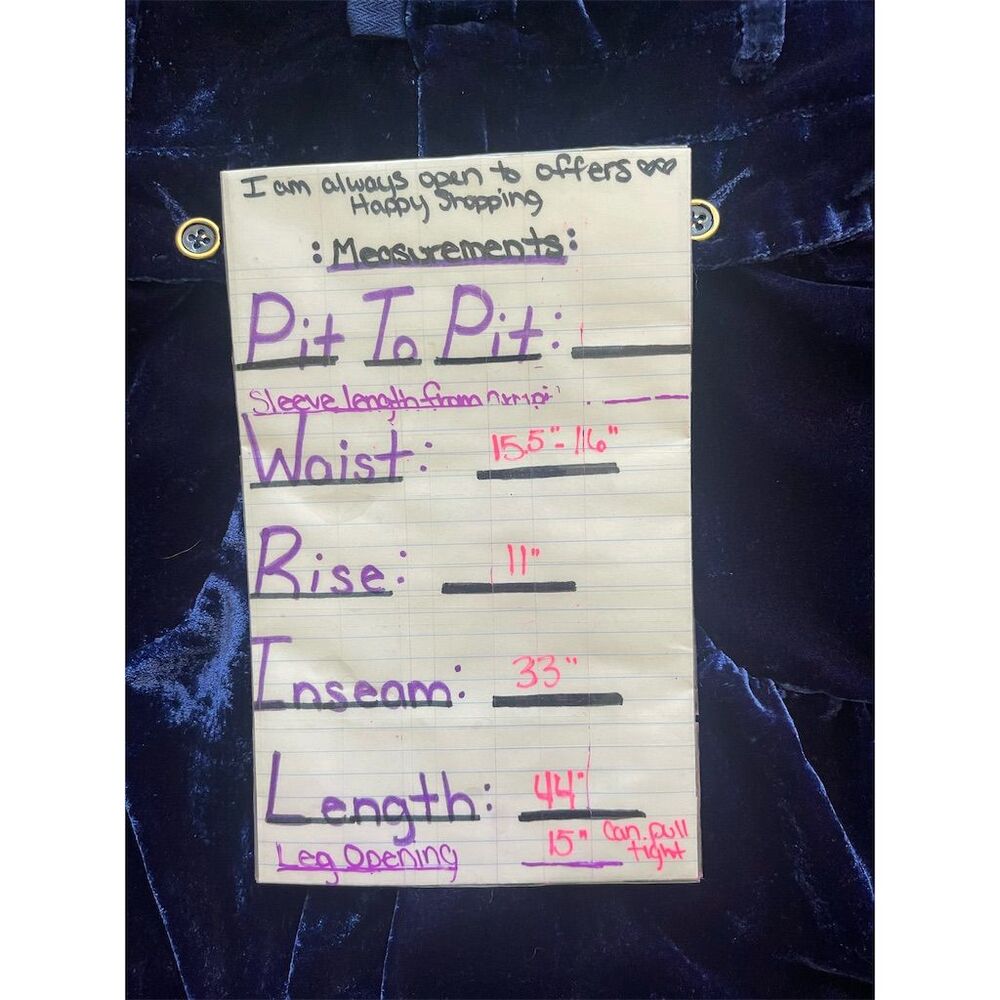 I am always open to offers
Happy Shopping
: Measurements:
Pit To Pit:
Sleeve length from
Waist: 15.5"- 16"
Rise: 11"
Inseam: 33"
Length: 44"
Leg Opening 15" Can pull
tight